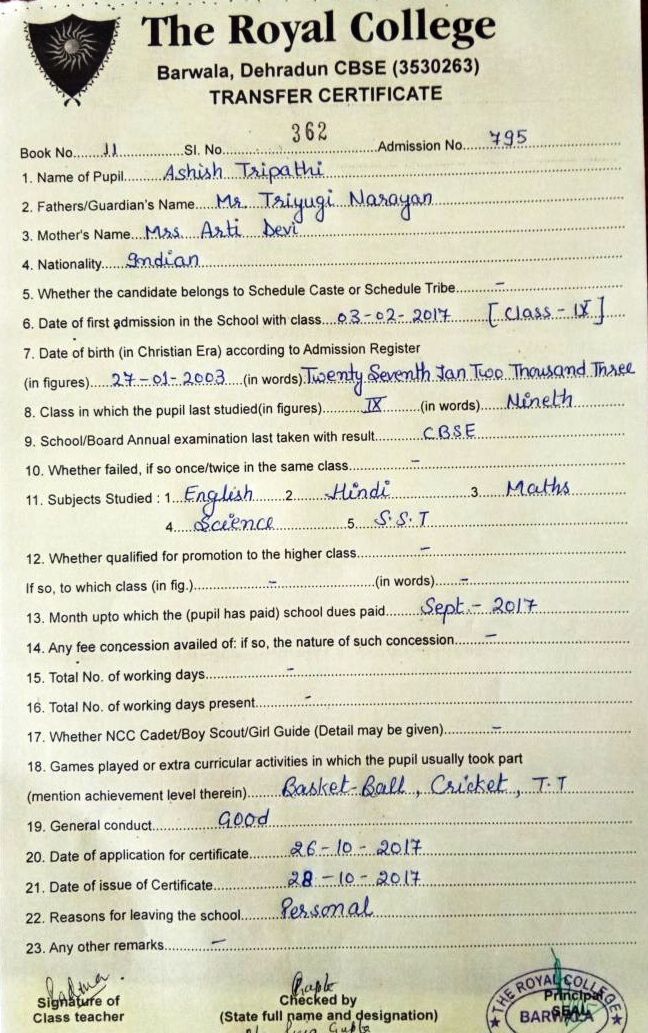 The Royal College
Barwala, Dehradun CBSE (3530263)
TRANSFER CERTIFICATE
Book No.....11.....Sl. No.....362.....Admission No.....795
1. Name of Pupil.....Ashish Tripathi
2. Fathers/Guardian's Name....Mr. Triyugi Narayan
3. Mother's Name...Mrs. Arti Devi
4. Nationality.....Indian
5. Whether the candidate belongs to Schedule Caste or Schedule Tribe.....–
6. Date of first admission in the School with class...03-02-2017 [Class - IX]
7. Date of birth (in Christian Era) according to Admission Register
(in figures)....27-01-2003....(in words).Twenty Seventh Jan Two Thousand Three
8. Class in which the pupil last studied(in figures).....IX.....(in words)....Nineth
9. School/Board Annual examination last taken with result.....CBSE
10. Whether failed, if so once/twice in the same class.....–
11. Subjects Studied : 1...English.....2.....Hindi.....3.....Maths
4....Science....5....S.S.T
12. Whether qualified for promotion to the higher class.....–
If so, to which class (in fig.).....–.....(in words)....–
13. Month upto which the (pupil has paid) school dues paid.....Sept.- 2017
14. Any fee concession availed of: if so, the nature of such concession.....–
15. Total No. of working days.....–
16. Total No. of working days present.....–
17. Whether NCC Cadet/Boy Scout/Girl Guide (Detail may be given).....–
18. Games played or extra curricular activities in which the pupil usually took part
(mention achievement level therein).....Basket-Ball, Cricket, T.T
19. General conduct.....Good
20. Date of application for certificate.....26-10-2017
21. Date of issue of Certificate.....28-10-2017
22. Reasons for leaving the school.....Personal
23. Any other remarks.....–
Signature of
Class teacher
Checked by
(State full name and designation)
Gupta
THE ROYAL COLLEGE
Principal
SEAL
BARWALA